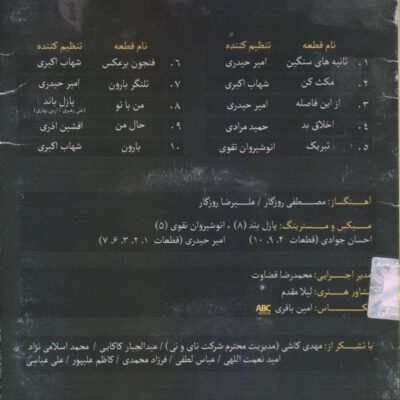 نام قطعه تنظیم کننده
۰۱ ثانیه های سنگین امیر حیدری
۰۲ مکث کن شهاب اکبری
۰۳ از این فاصله امیر حیدری
۰۴ اخلاق بد حمید مرادی
۰۵ تبریک انوشیروان تقوی
نام قطعه تنظیم کننده
۰۶ فنجون برعکس شهاب اکبری
۰۷ تلنگر بارون امیر حیدری
۰۸ من با تو پازل باند
(علی رهبری / آرین بهاری)
۰۹ حال من افشین آذری
۱۰ بارون شهاب اکبری
آهنگساز: مصطفی روزگار / علیرضا روزگار
میکس و مسترینگ: پازل بند (۸) ، انوشیروان تقوی (۵)
احسان جوادی (قطعات ۴، ۹، ۱۰) امیر حیدری (قطعات ۱، ۲، ۳، ۶، ۷)
مدیر اجرایی: محمدرضا قضاوت
مشاور هنری: لیلا مقدم
عکاس: امین باقری ABC
با تشکر از: مهدی کاشی (مدیریت محترم شرکت نای و نی) / عبدالجبار کاکایی / محمد اسلامی نژاد
امید نعمت اللهی / عباس لطفی / فرزاد محمدی / کاظم علیپور / علی عباسی